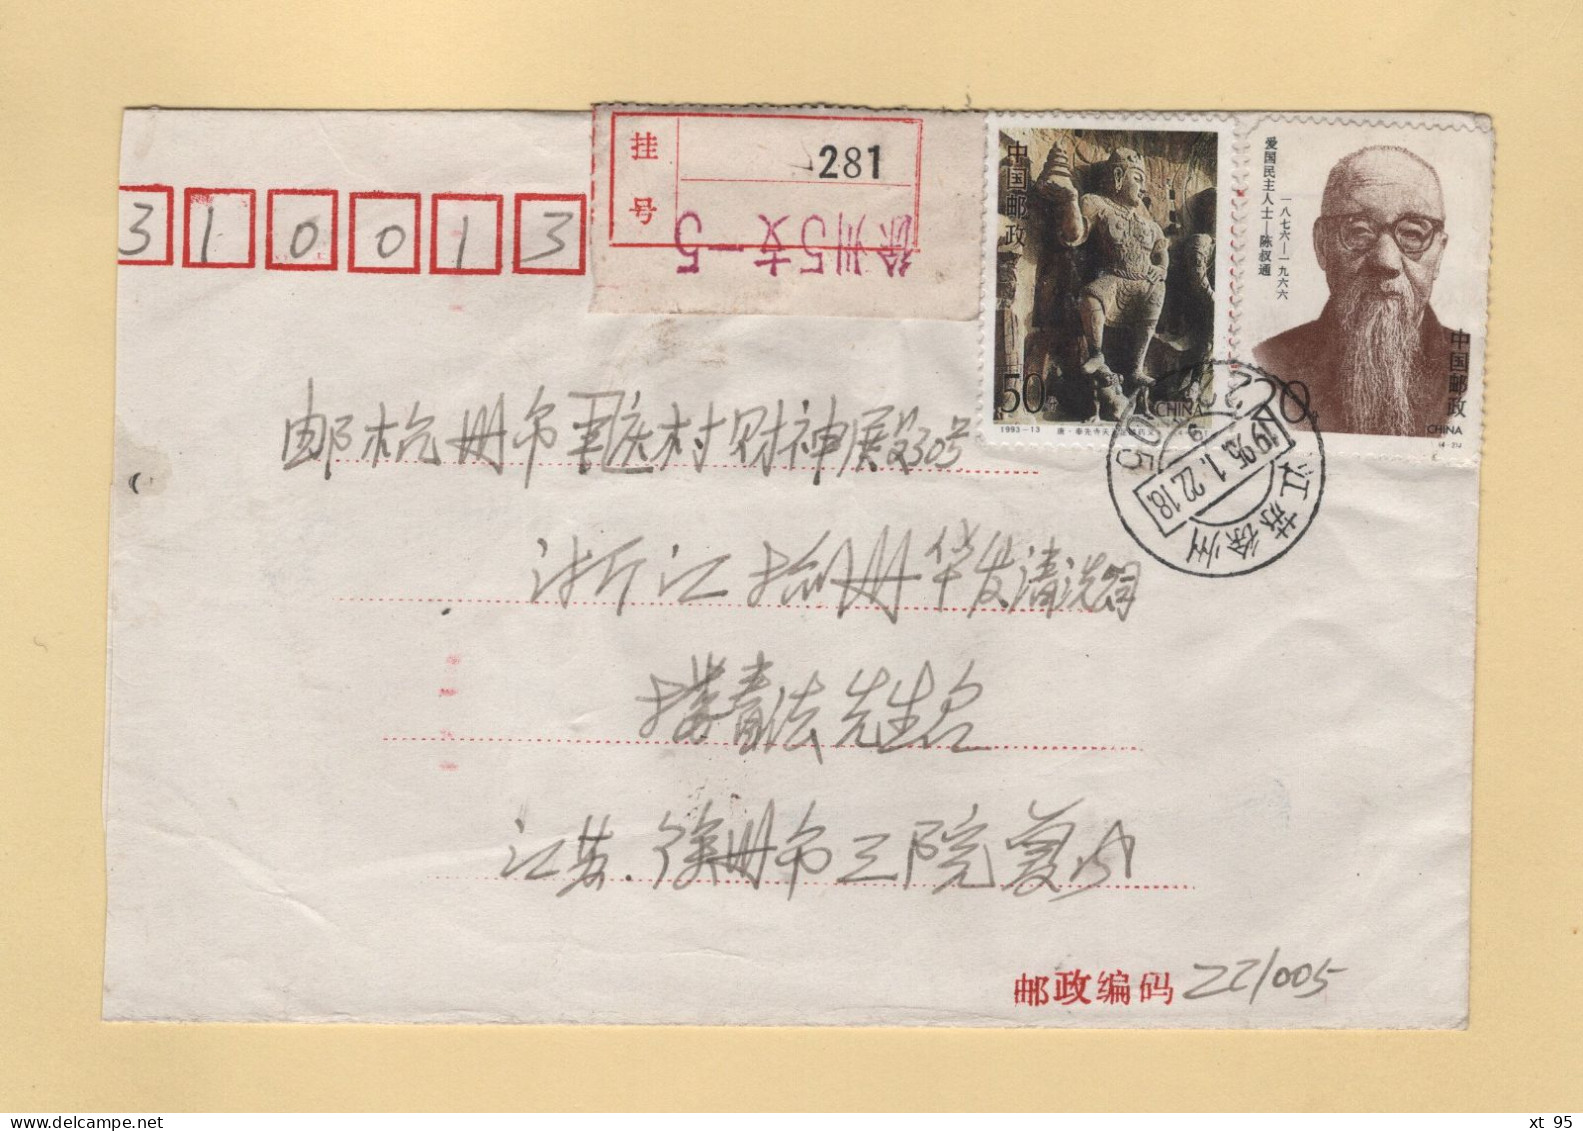 310013
挂号
281
徐州5支-5
中国邮政
50分
CHINA
1993-13
爱国民主人士—陈叔通
一八七六—一九六六
中国邮政
20分
CHINA
江苏徐州
1995.1.22.18
邮杭州市 村财神殿30号
浙江杭州华发清洗
青法先生
江苏.徐州市三院
邮政编码 221005
delcampe.net
xt 95